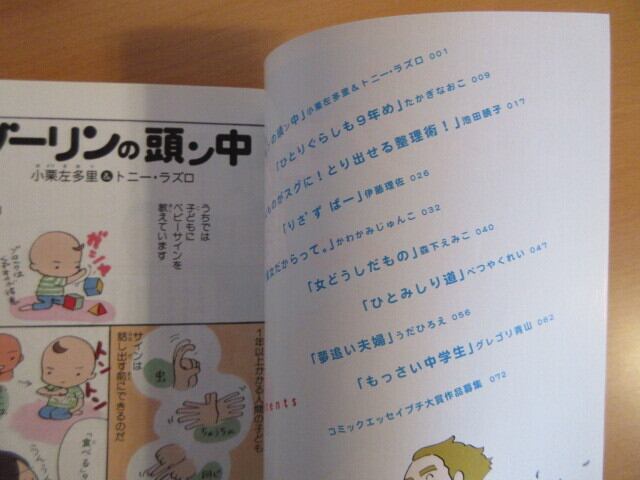 ーリンの頭ン中
小栗左多里&トニー・ラズロ
うちでは
子どもに
ベビーサインを
教えています
ガシャ
1年以上かかる人間の子ども
サインは
話し出す前にできるのだ
虫
ちょうちょ
トントン
「食べる」
の頭ン中」小栗左多里&トニー・ラズロ 001
「ひとりぐらしも9年め」たかぎなおこ 009
ものがスグに!とり出せる整理術!」池田暁子 017
「りさ゛ず ばー」伊藤理佐 026
女だからって。」かわかみじゅんこ 032
「女どうしだもの」森下えみこ 040
「ひとみしり道」べつやくれい 047
「夢追い夫婦」うだひろえ 056
「もっさい中学生」グレゴリ青山 062
コミックエッセイプチ大賞作品募集 072
tents